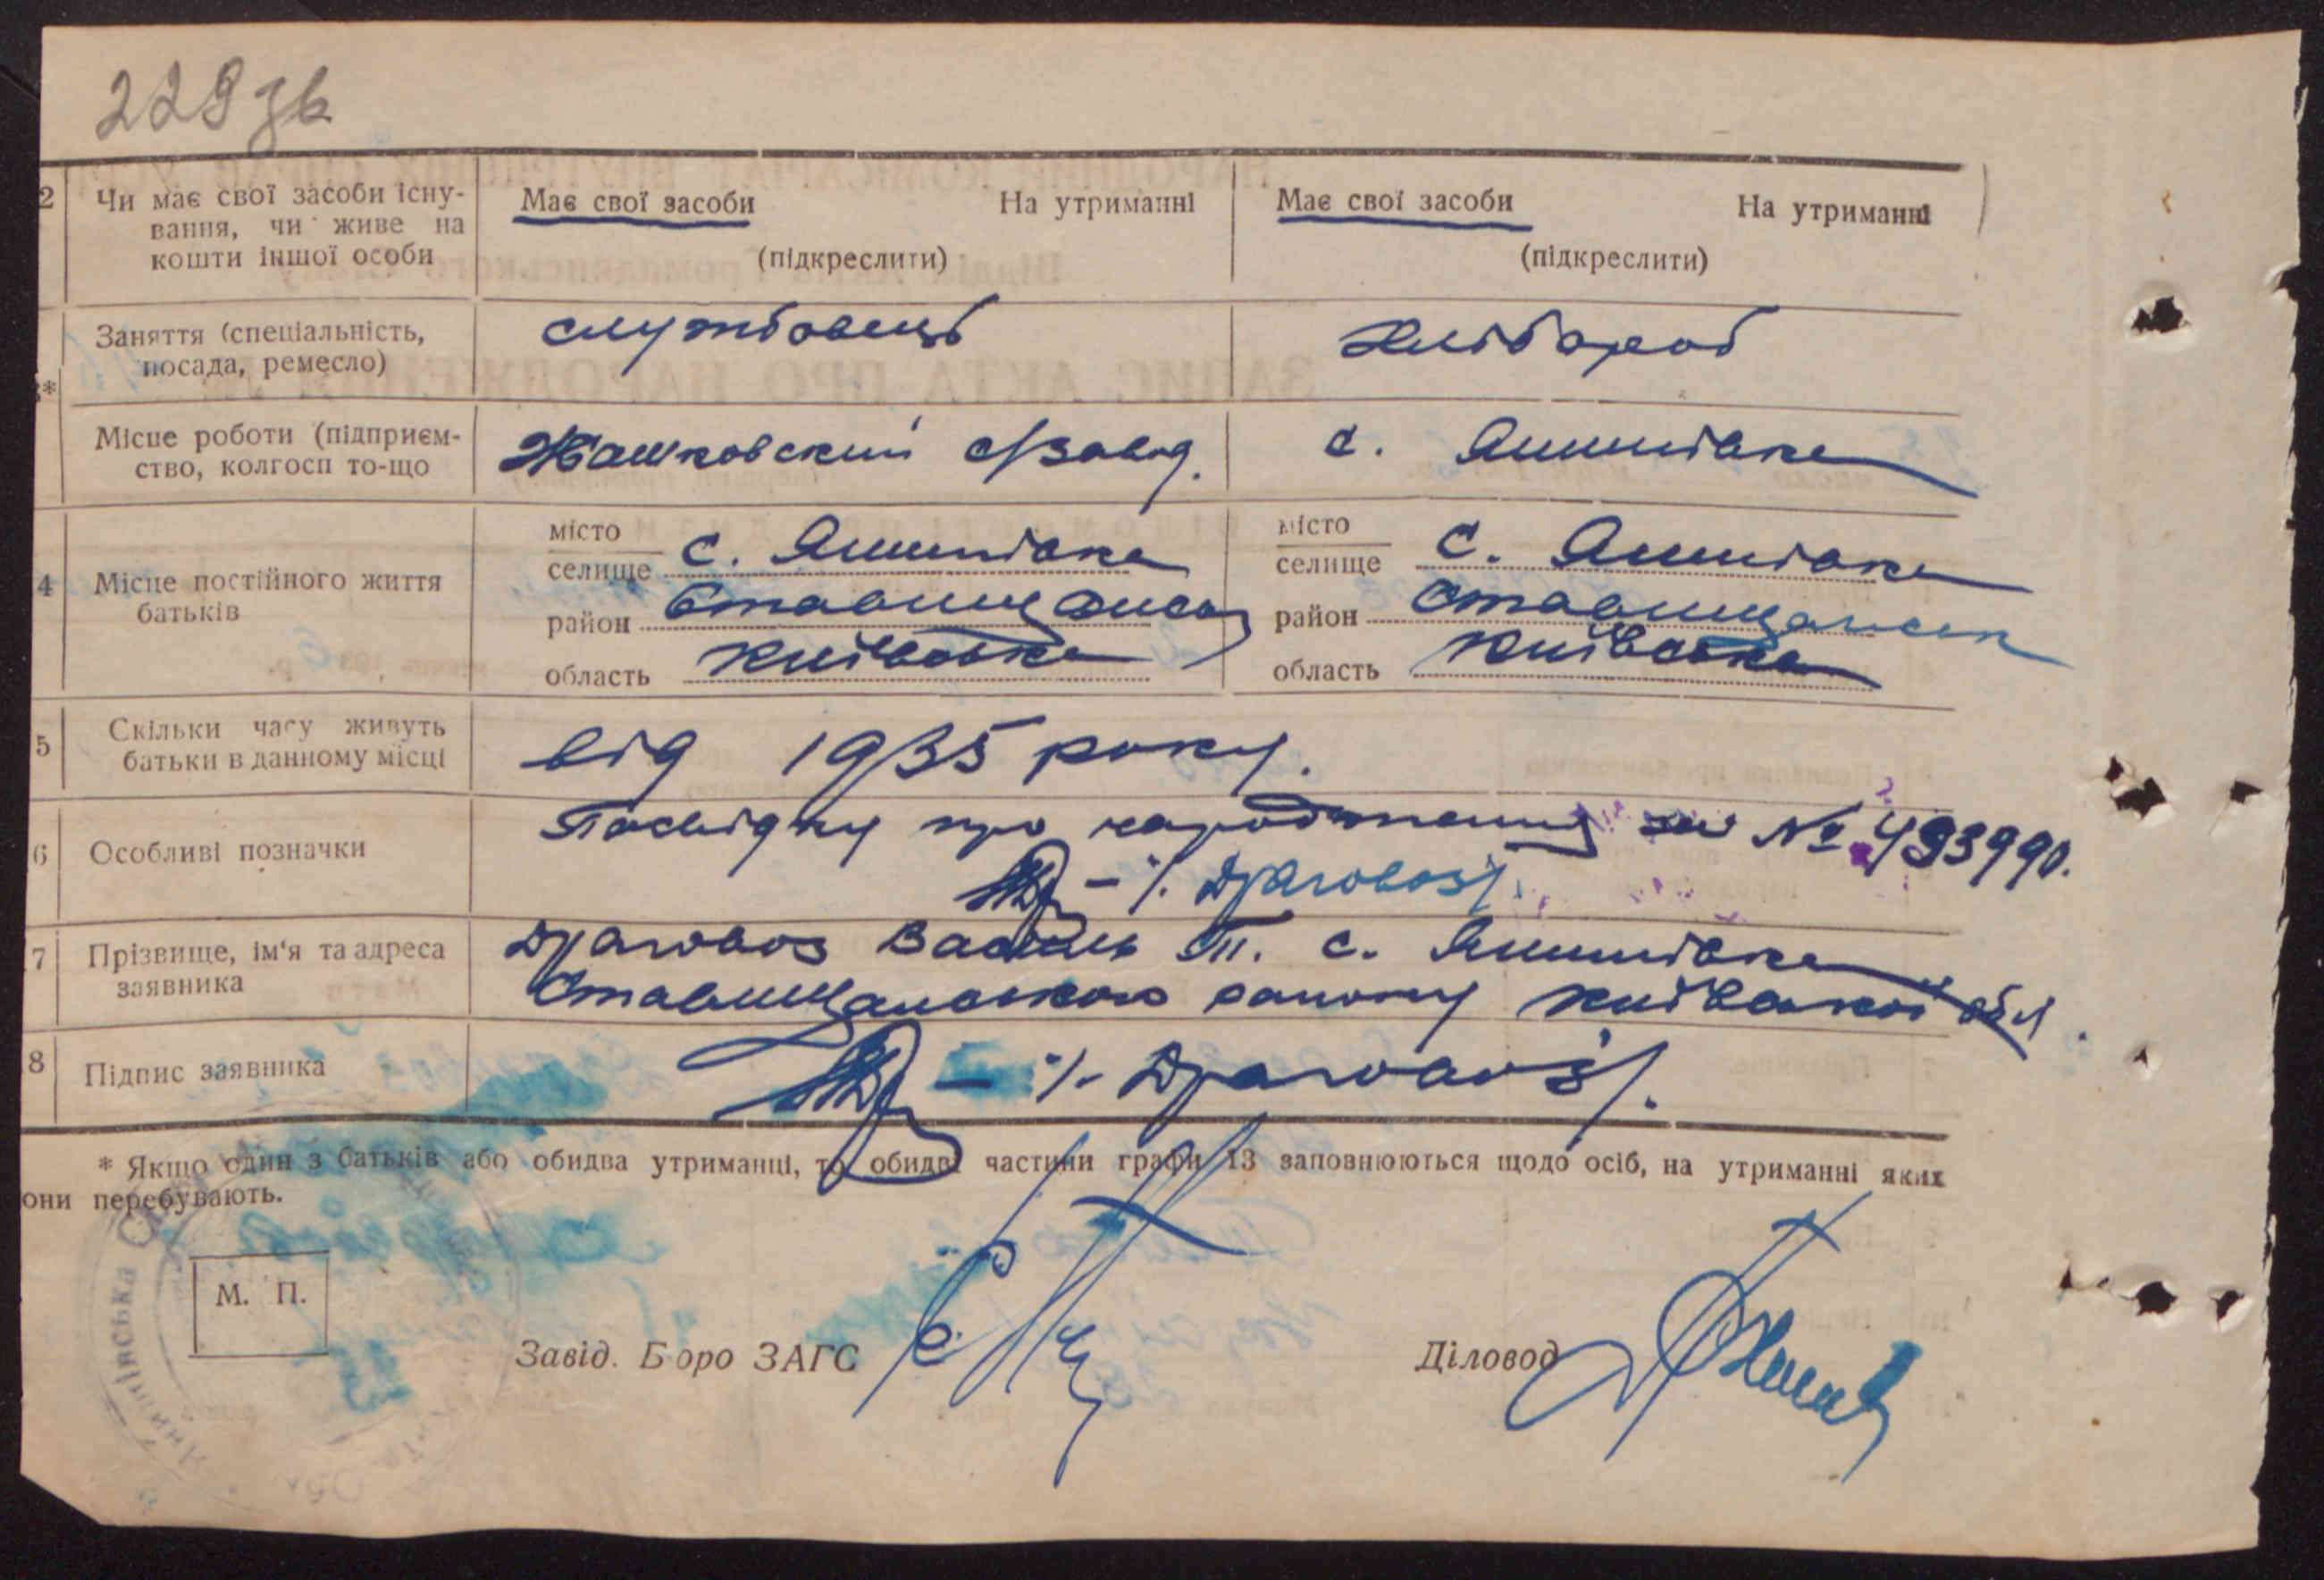 229 зв
2 Чи має свої засоби існу-
вання, чи живе на
кошти іншої особи
Має свої засоби На утриманні
(підкреслити)
Має свої засоби На утриманні
(підкреслити)
* Заняття (спеціальність,
посада, ремесло)
службовець
хлібороб
Місце роботи (підприєм-
ство, колгосп то-що
Жашковский с/завод.
с. Янишівка
4 Місце постійного життя
батьків
місто
селище с. Янишівка
район Ставищанськ
область Київська
місто
селище с. Янишівка
район Ставищанськ
область Київська
5 Скільки часу живуть
батьки в данному місці
від 1935 року.
6 Особливі позначки
Посвідку про народження за № 493990.
– /. Драговоз/.
7 Прізвище, ім'я та адреса
заявника
Драговоз Василь П. с. Янишівка
Ставищанського району Київської обл.
8 Підпис заявника
– /. Драговоз/.
* Якщо один з батьків або обидва утриманці, то обидві частини графи 13 заповнюються щодо осіб, на утриманні яких
они перебувають.
М. П.
Завід. Бюро ЗАГС
Діловод